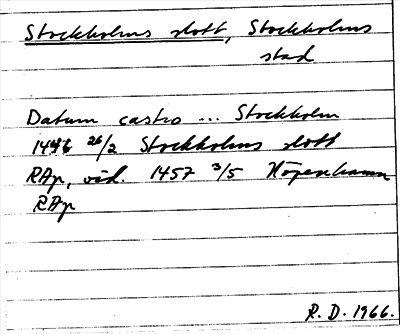 Stockholms slott, Stockholms
stad
Datum castro ... Stockholm
1446 26/2 Stockholms slott
RAp, vid. 1457 3/5 Högenhamn
RAp
R. D. 1966.